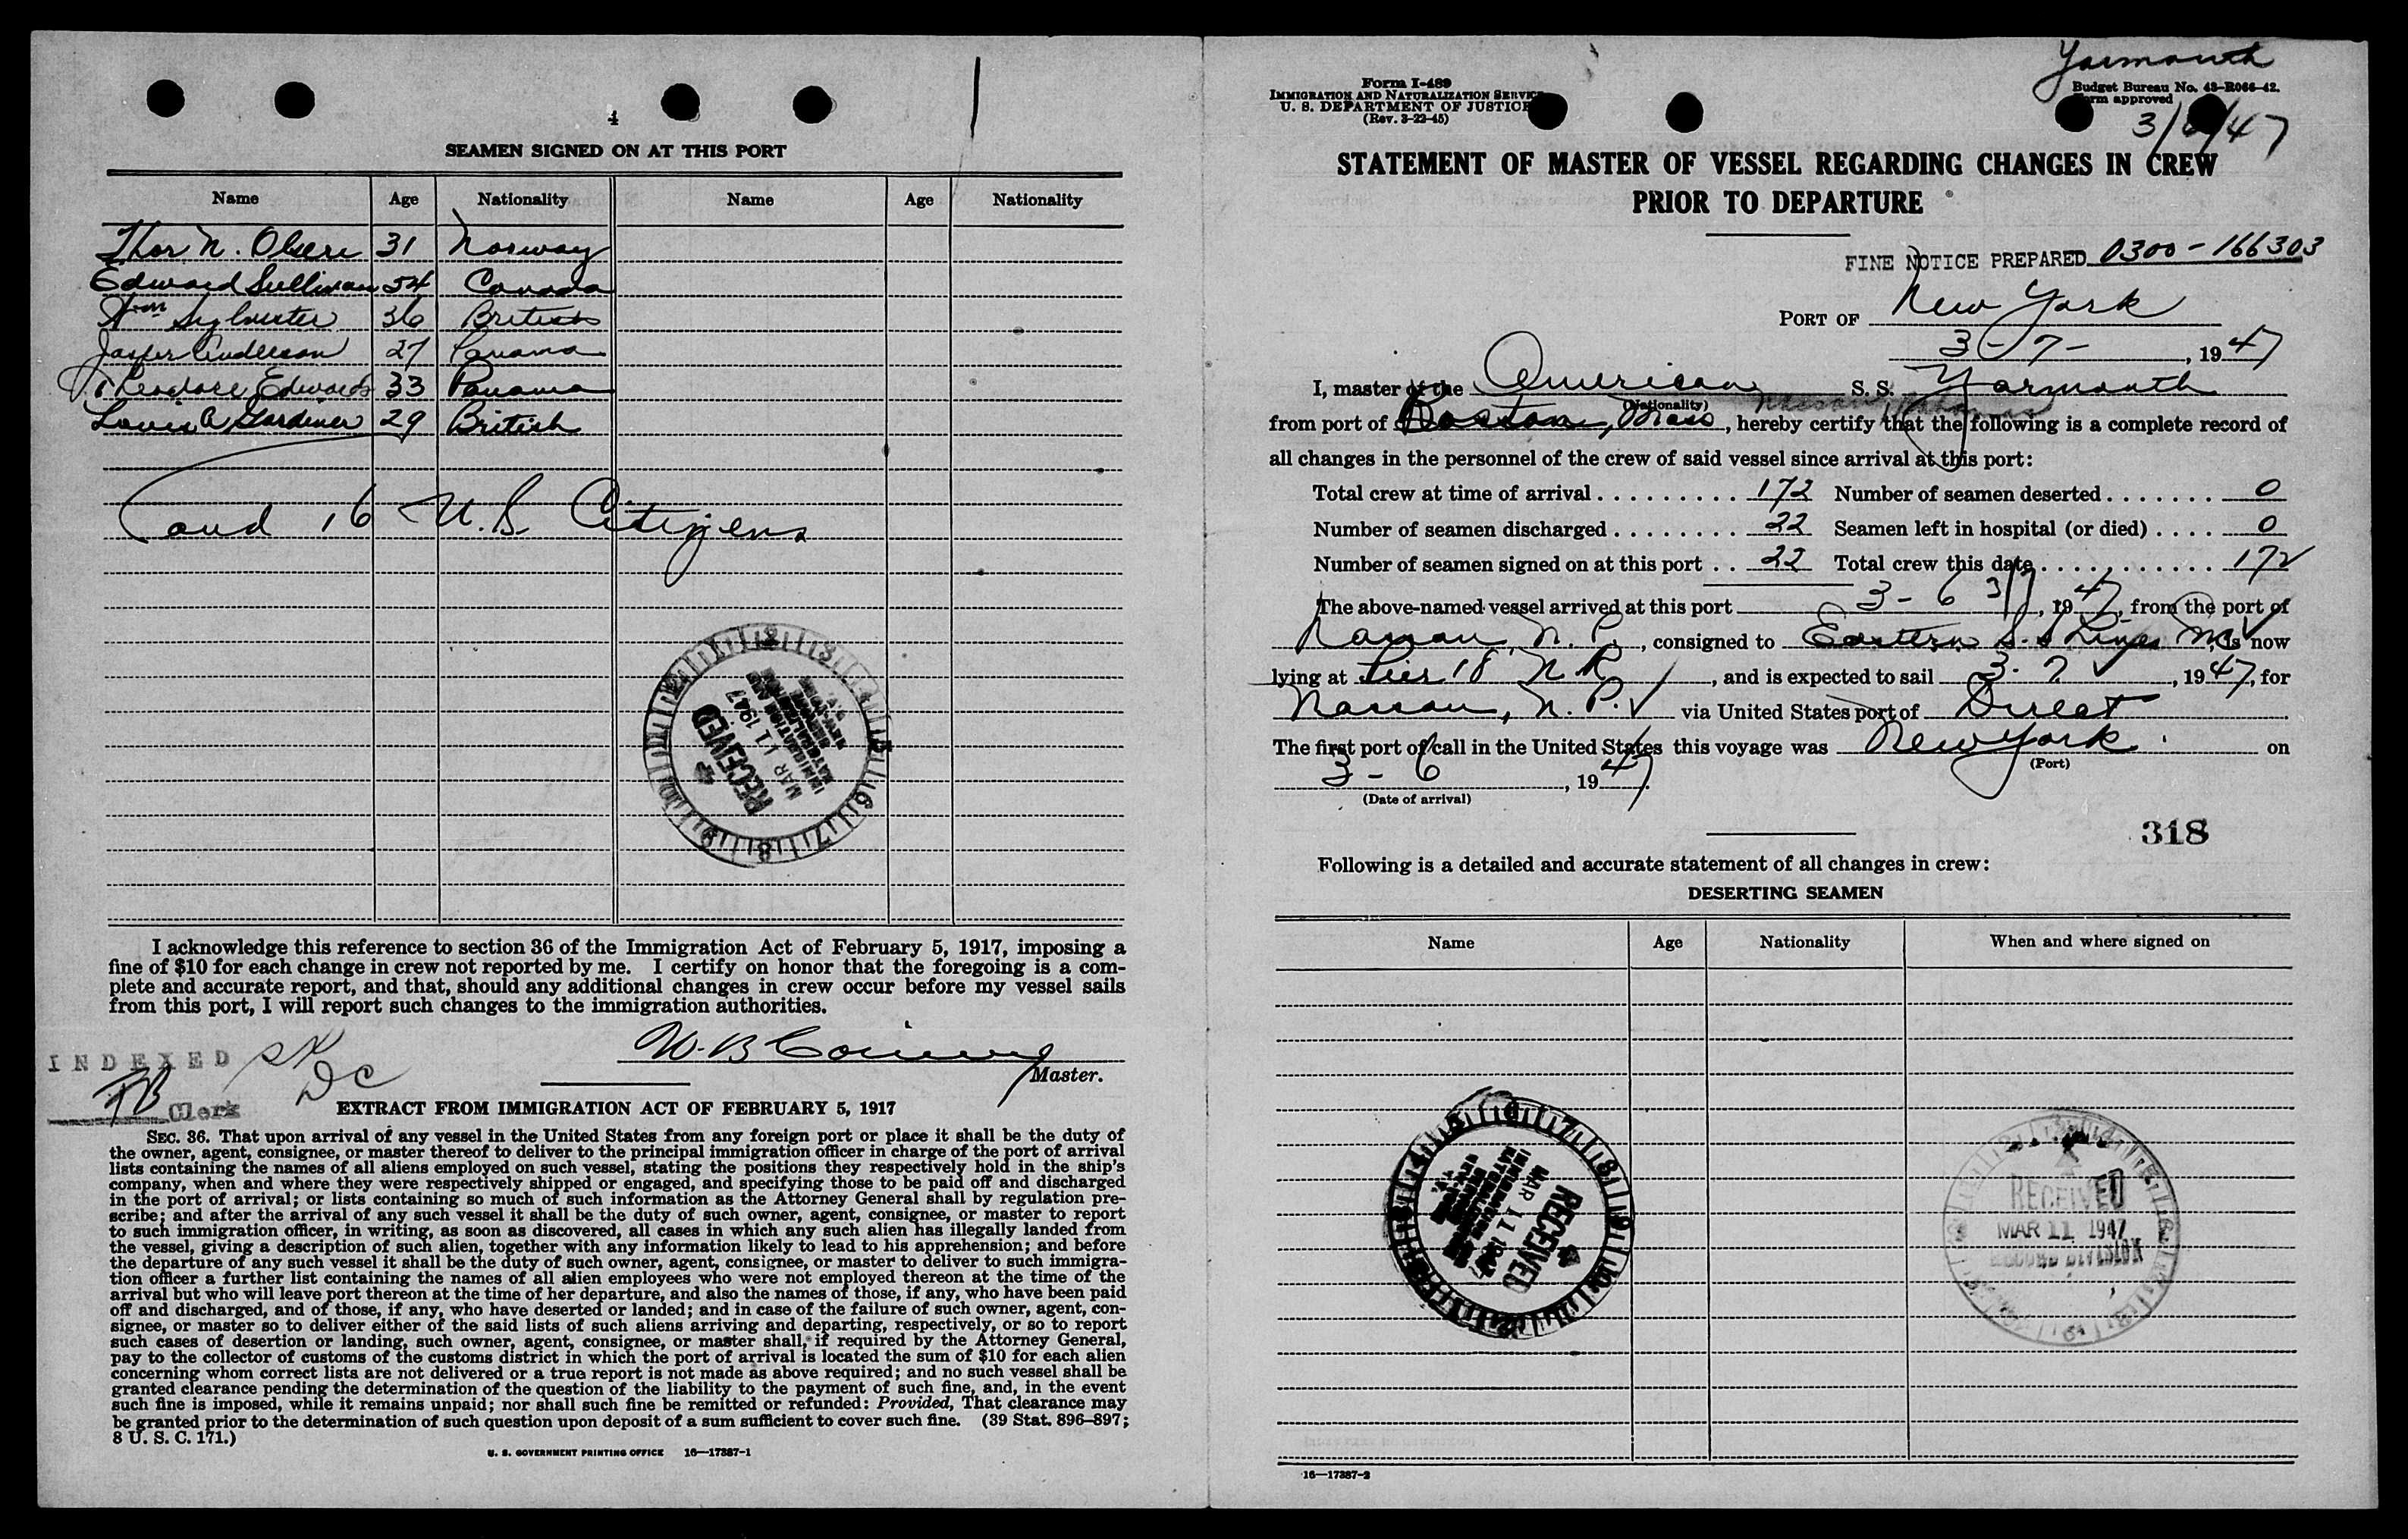 4
SEAMEN SIGNED ON AT THIS PORT
Name Age Nationality Name Age Nationality
Thor N. Olsen 31 Norway
Edward Sullivan 54 Canada
Wm Sylvester 36 British
Jasper Anderson 27 Panama
Theodore Edwards 33 Panama
Louis A Gardiner 29 British
and 16 U.S. Citizens
RECEIVED
MAR 11 1947
IMMIGRATION AND
NATURALIZATION
SERVICE
I acknowledge this reference to section 36 of the Immigration Act of February 5, 1917, imposing a
fine of $10 for each change in crew not reported by me. I certify on honor that the foregoing is a com-
plete and accurate report, and that, should any additional changes in crew occur before my vessel sails
from this port, I will report such changes to the immigration authorities.
W. B.
Master.
INDEXED
Clerk
DC
EXTRACT FROM IMMIGRATION ACT OF FEBRUARY 5, 1917
SEC. 36. That upon arrival of any vessel in the United States from any foreign port or place it shall be the duty of
the owner, agent, consignee, or master thereof to deliver to the principal immigration officer in charge of the port of arrival
lists containing the names of all aliens employed on such vessel, stating the positions they respectively hold in the ship's
company, when and where they were respectively shipped or engaged, and specifying those to be paid off and discharged
in the port of arrival; or lists containing so much of such information as the Attorney General shall by regulation pre-
scribe; and after the arrival of any such vessel it shall be the duty of such owner, agent, consignee, or master to report
to such immigration officer, in writing, as soon as discovered, all cases in which any such alien has illegally landed from
the vessel, giving a description of such alien, together with any information likely to lead to his apprehension; and before
the departure of any such vessel it shall be the duty of such owner, agent, consignee, or master to deliver to such immigra-
tion officer a further list containing the names of all alien employees who were not employed thereon at the time of the
arrival but who will leave port thereon at the time of her departure, and also the names of those, if any, who have been paid
off and discharged, and of those, if any, who have deserted or landed; and in case of the failure of such owner, agent, con-
signee, or master so to deliver either of the said lists of such aliens arriving and departing, respectively, or so to report
such cases of desertion or landing, such owner, agent, consignee, or master shall, if required by the Attorney General,
pay to the collector of customs of the customs district in which the port of arrival is located the sum of $10 for each alien
concerning whom correct lists are not delivered or a true report is not made as above required; and no such vessel shall be
granted clearance pending the determination of the question of the liability to the payment of such fine, and, in the event
such fine is imposed, while it remains unpaid; nor shall such fine be remitted or refunded: Provided, That clearance may
be granted prior to the determination of such question upon deposit of a sum sufficient to cover such fine. (39 Stat. 896–897;
8 U. S. C. 171.)
U. S. GOVERNMENT PRINTING OFFICE 16—17387-1
Yarmouth
Form I-489
IMMIGRATION AND NATURALIZATION SERVICE
U. S. DEPARTMENT OF JUSTICE
(Rev. 3-22-45)
Budget Bureau No. 43-R066-42.
Form approved
3/6/47
STATEMENT OF MASTER OF VESSEL REGARDING CHANGES IN CREW
PRIOR TO DEPARTURE
FINE NOTICE PREPARED 0300-166303
PORT OF New York
3-7-, 1947
I, master of the American S. S. Yarmouth
(Nationality) Nassau, Bahamas
from port of Boston, Mass, hereby certify that the following is a complete record of
all changes in the personnel of the crew of said vessel since arrival at this port:
Total crew at time of arrival . . . . . . . . . 172 Number of seamen deserted . . . . . . . 0
Number of seamen discharged . . . . . . . . 22 Seamen left in hospital (or died) . . . . 0
Number of seamen signed on at this port . . 22 Total crew this date . . . . . . . . . . . . 172
The above-named vessel arrived at this port 3-6 3/7, 1947, from the port of
Nassau, N. P., consigned to Eastern S. S Lines, is now
lying at Pier 18 N R, and is expected to sail 3-7, 1947, for
Nassau, N. P. via United States port of Direct
The first port of call in the United States this voyage was New York on
(Port)
3-6, 1947.
(Date of arrival)
318
Following is a detailed and accurate statement of all changes in crew:
DESERTING SEAMEN
Name Age Nationality When and where signed on
RECEIVED
MAR 11 1947
IMMIGRATION AND
RECEIVED
MAR 11 1947
RECORD DIVISION
16—17387-2